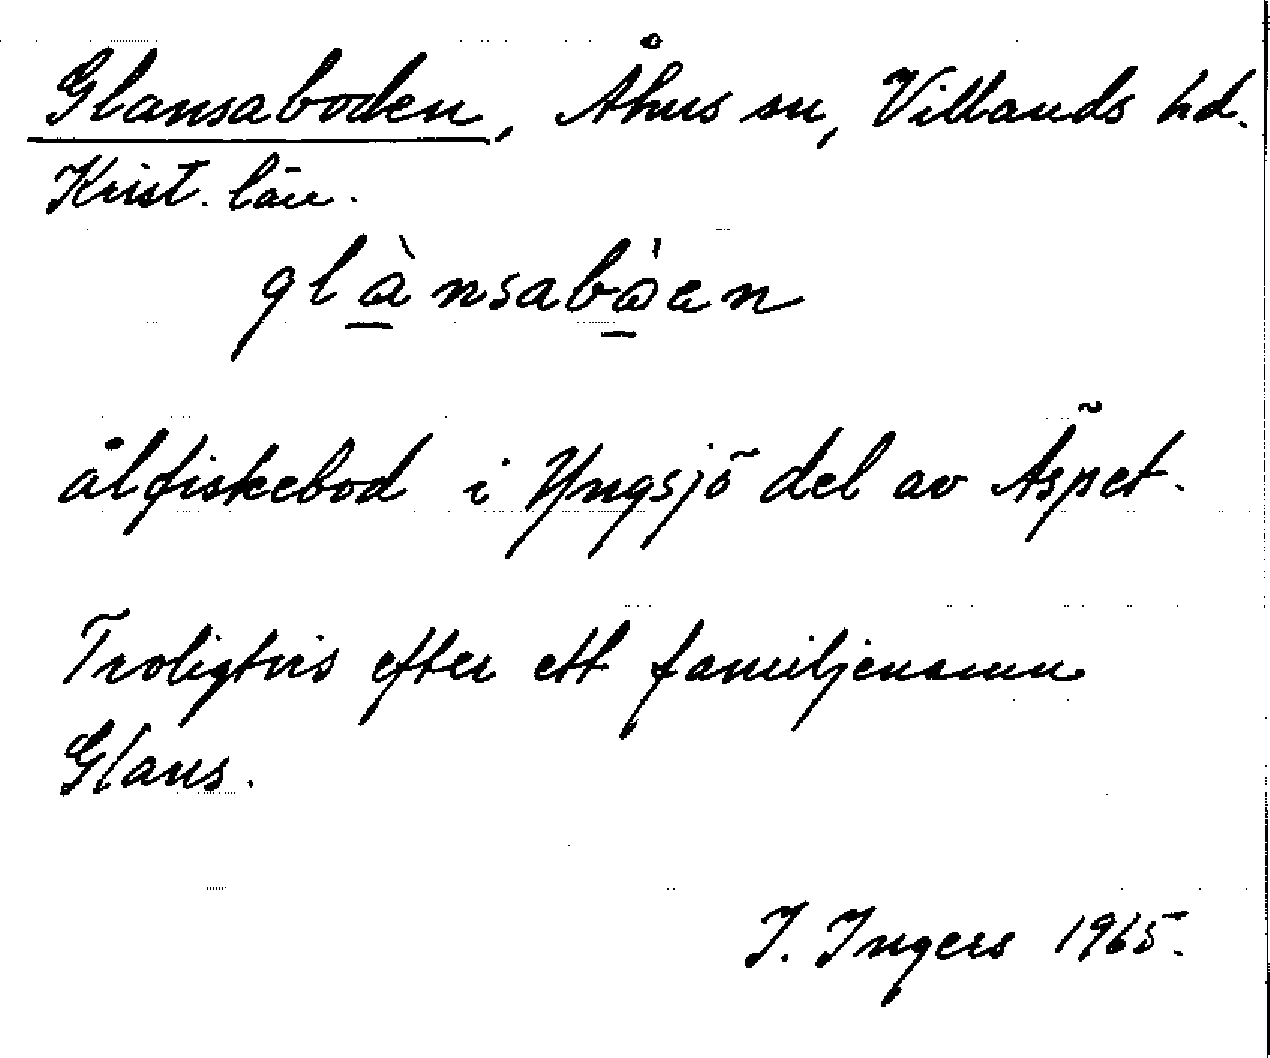 Glansaboden, Åhus sn, Villands hd.
Krist. län.
glànsabåen
ålfiskebod i Yngsjö del av Äspet.
Troligtvis efter ett familjenamn
Glans.
I. Ingers 1965.